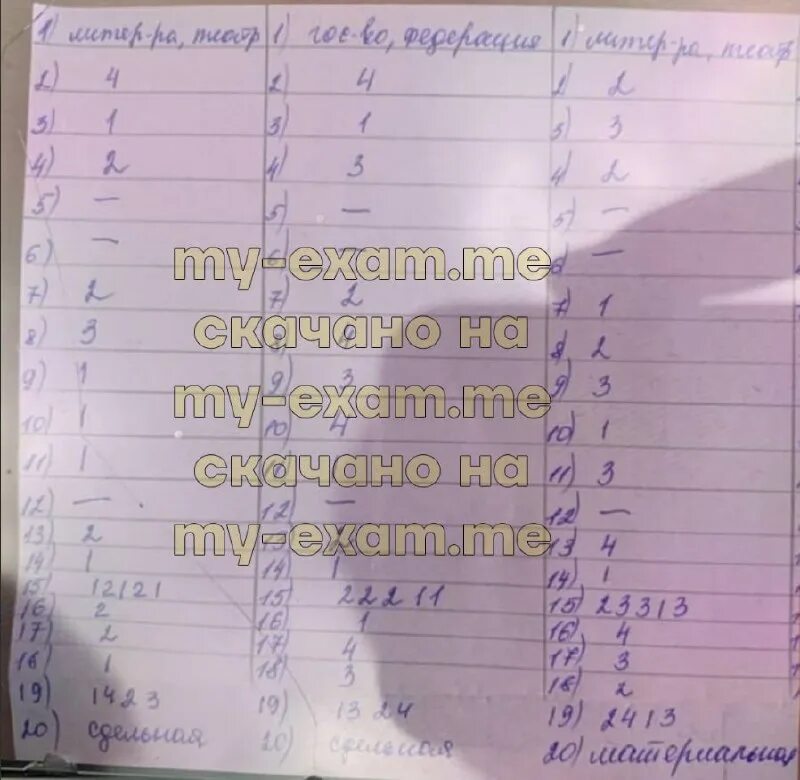 1) литер-ра, театр 1) гос-во, федерация 1) литер-ра, театр
2) 4 2) 4 2) 2
3) 1 3) 1 3) 3
4) 2 4) 3 4) 2
5) — 5) — 5) —
6) — 6) — 6) —
my-exam.me
7) 2 7) 2 7) 1
скачано на
8) 3 4 8) 2
9) 1 9) 3 9) 3
my-exam.me
10) 1 10) 4 10) 1
скачано на
11) 1 11) 3
12) — 12) — 12) —
my-exam.me
13) 2 13) 4
14) 1 14) 1 14) 1
15) 12121 15) 22211 15) 23313
16) 2 16) 1 16) 4
17) 2 17) 4 17) 3
18) 1 18) 3 18) 2
19) 1423 19) 1324 19) 2413
20) сдельная 20) сдельная 20) материальная